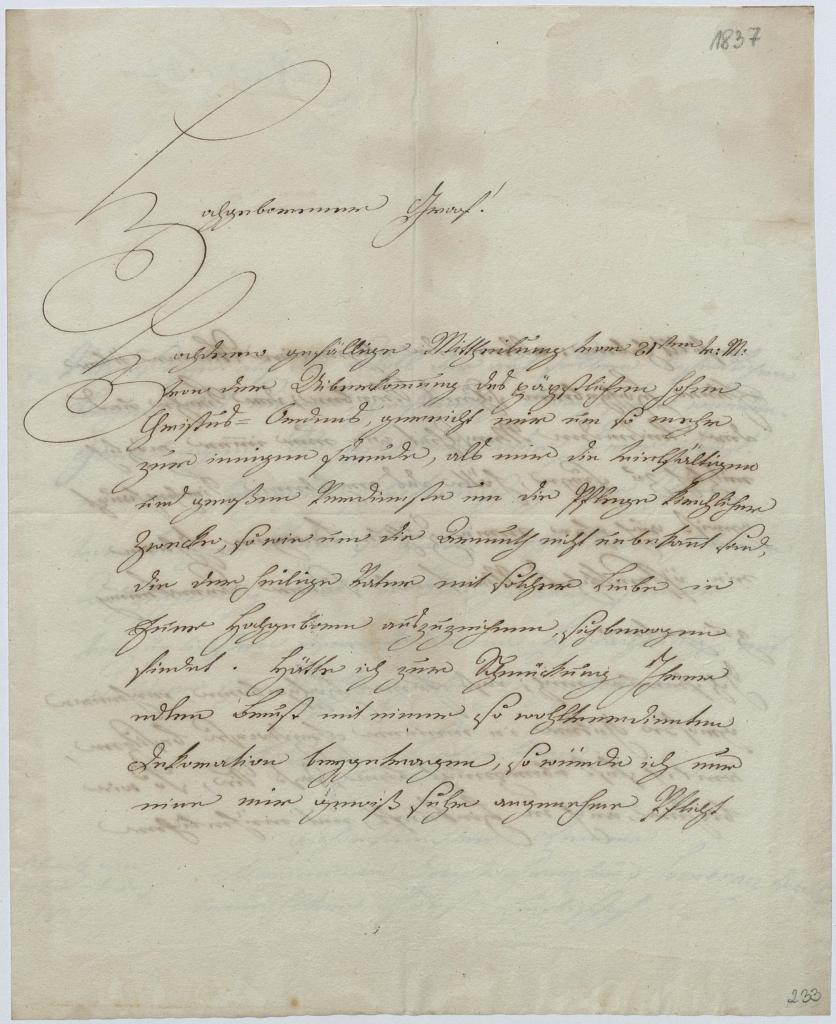 1837
Hochgeborner Graf!
Hochdero gefällige Mittheilung vom 21ten v: M:
von der Überkommung des päpstlichen hohen
Christus= Ordens, gereicht mir um so mehr
zur innigen Freude, als mir die vielfältigen
und großen Verdienste um die Pflege kirchlicher
Zwecke, so wie um die Armuth nicht unbekannt sind,
die der heilige Vater mit solcher Liebe in
Euer Hochgeboren auszuzeichnen, sich bewogen
findet. Hätte ich zur Schmückung Ihrer
edlen Brust mit einer so wohlverdienten
Dekoration beygetragen, so würde ich nur
eine mir gewiß sehr angenehme Pflicht
233